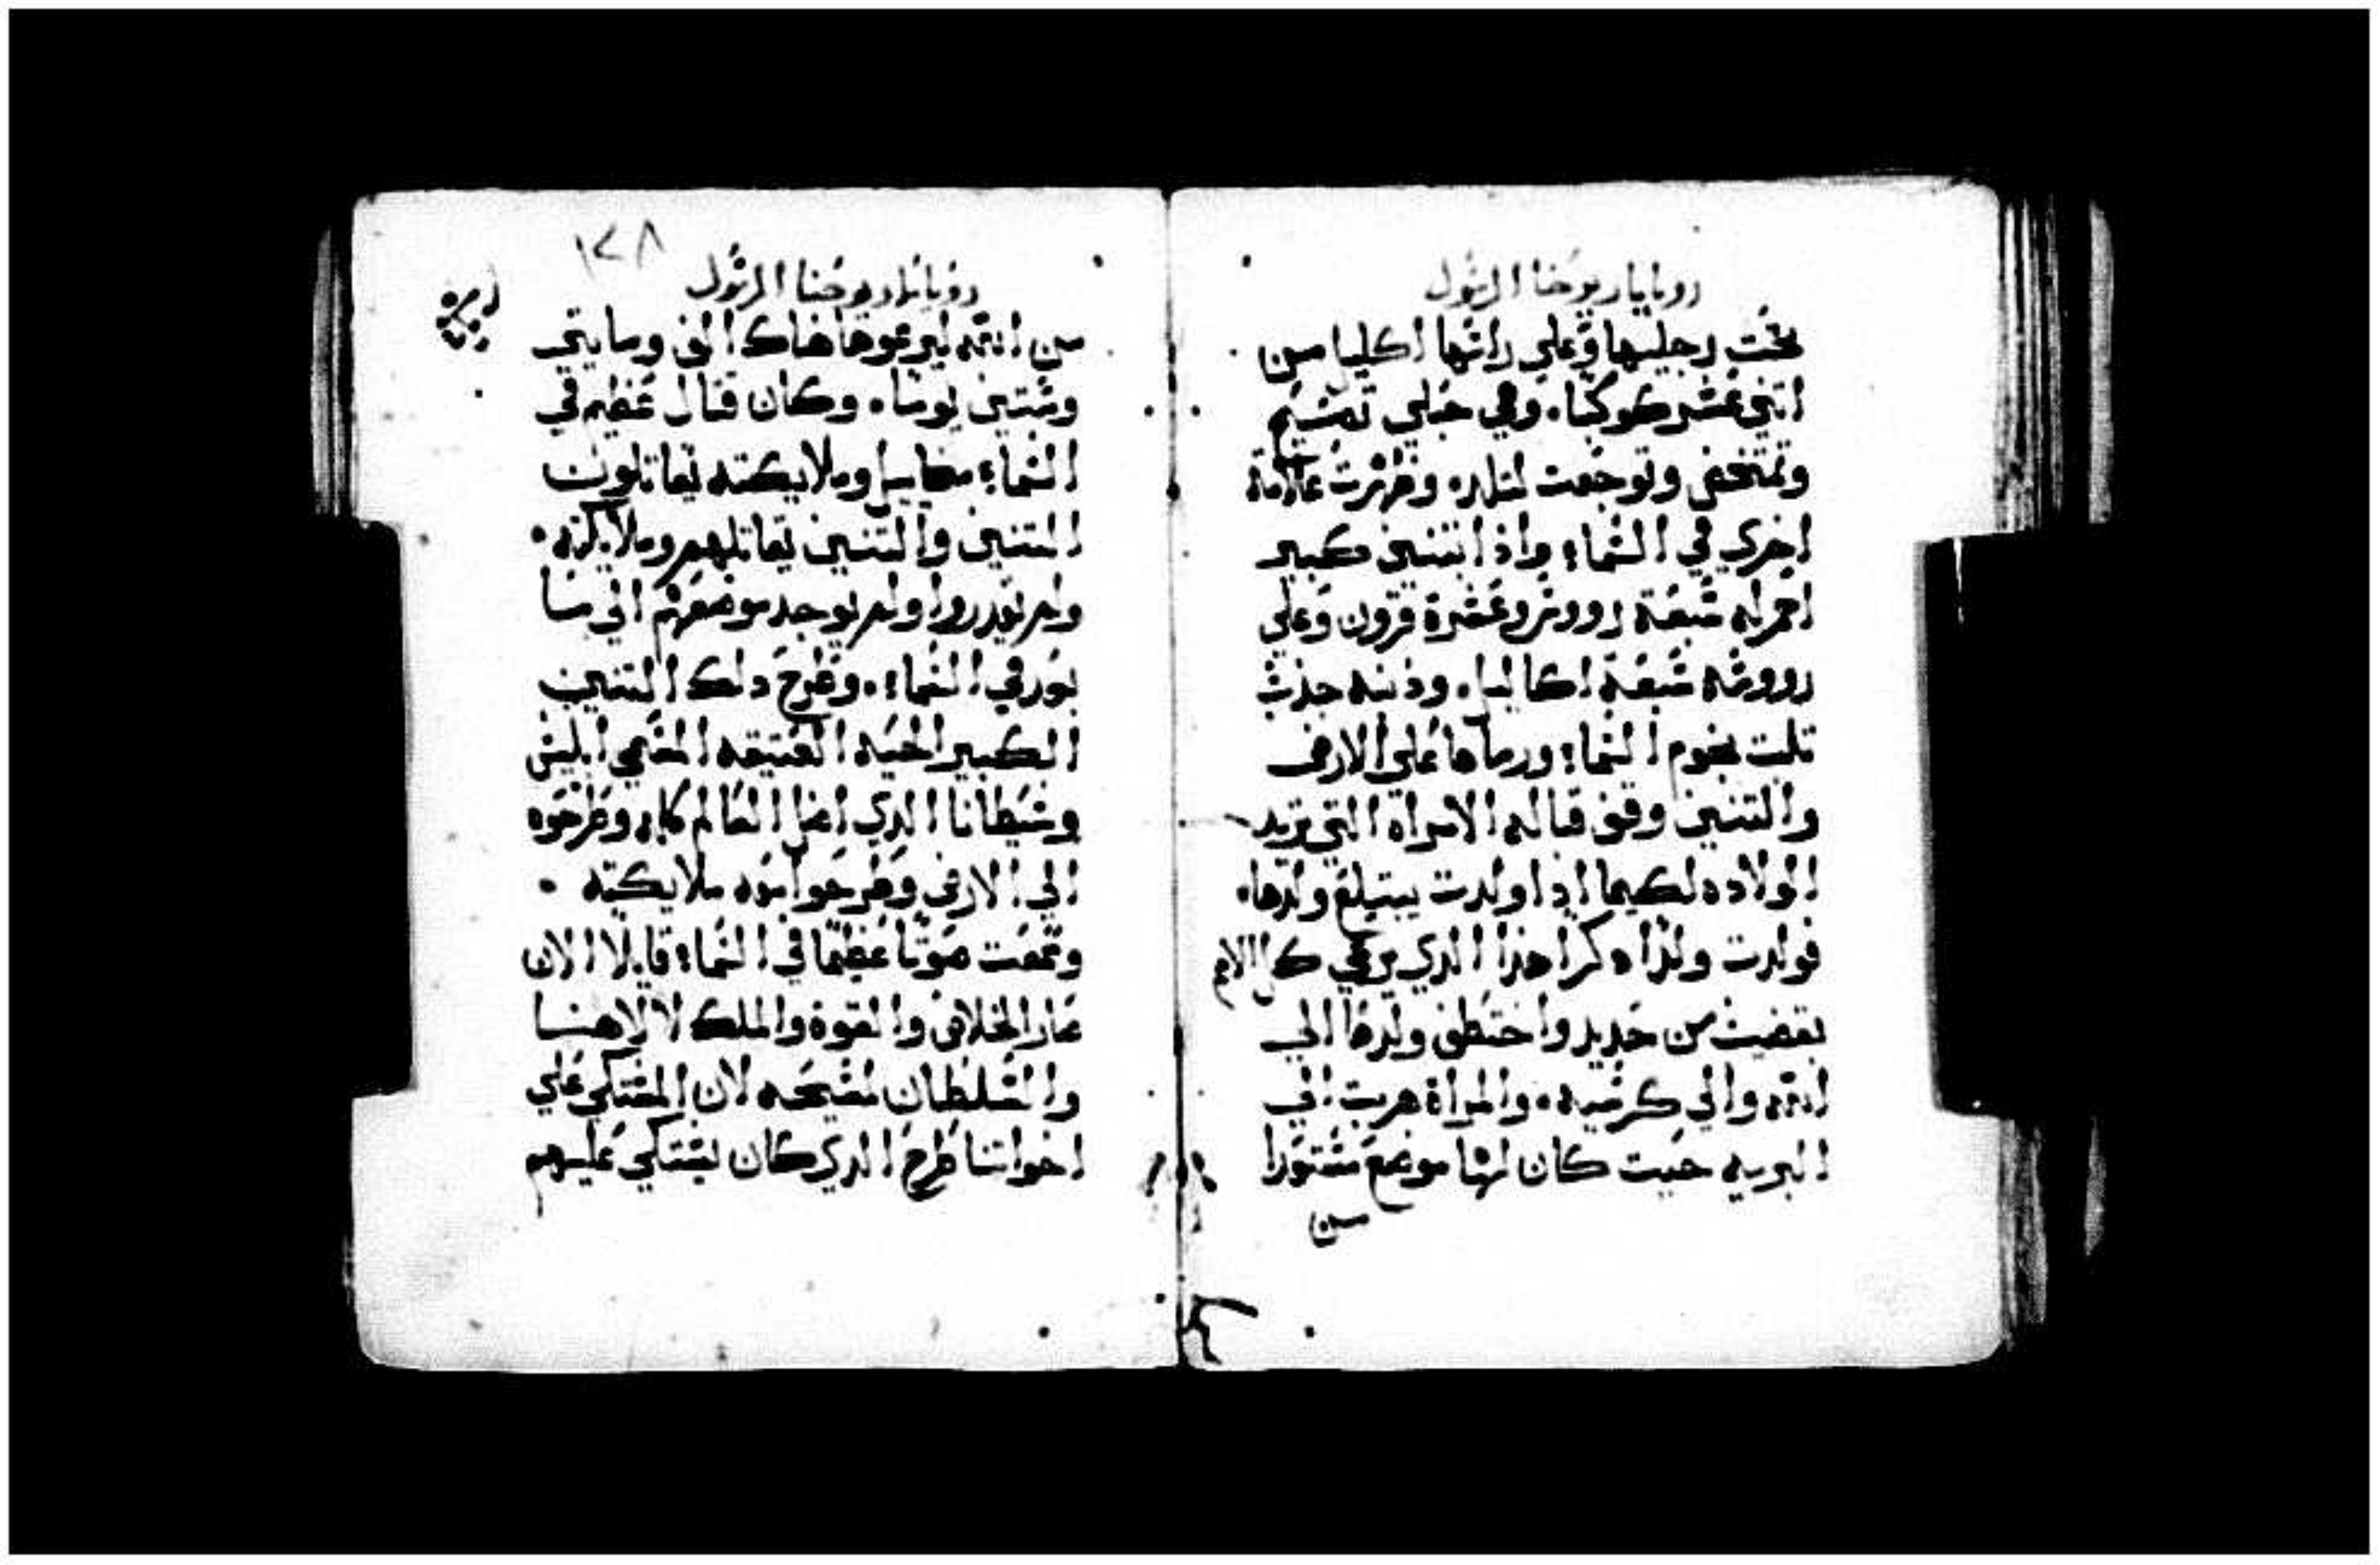 رويا يار يوحنا الرسول
تحت رجليها وعلي راسها اكليل من
اتني عشر كوكبًا. وهي حبلي تصيح
وتمتخض وتوجعت لتلد. وظهرت علامة
اخري في السماء واذا بتنين كبير
احمر له سبعة رووس وعشرة قرون وعلي
رووسه سبعة اكاليل. وذنبه جذب
تلت نجوم السماء ورماها علي الارض
والتنين وقف قبالة الامراه التي تريد
الولاده لكيما اذا ولدت يبتلع ولدها.
فولدت ولدًا دكرا هذا الذي يرعي كل الامم
بقضيب من حديد واختطف ولدها الي
الله والي كرسيه. والمراة هربت الي
البريه حيت كان لها موضع مستورا
من
١٢٨
رويا مار يوحنا الرسول
من الله ليرعوها هناك الف ومايتي
وستين يومًا. وكان قتال عظيم في
السماء ميخاييل وملايكته يقاتلون
التنين والتنين يقاتلهم وملايكته.
ولم يقدروا ولم يوجد موضعهم الي ما
بعد في السماء. وطرح دلك التنين
الكبير الحيه العتيقه المسمي ابليس
وشيطانا الدي اضل العالم كله وطرحوه
الي الارض وطرحوا معه ملايكته.
وسمعت صوتًا عظيمًا في السماء قايلا الان
صار الخلاص والقوة والملك لالاهنا
والسلطان لمسيحه لان المشتكي علي
اخواتنا طرح الدي كان يشتكي عليهم